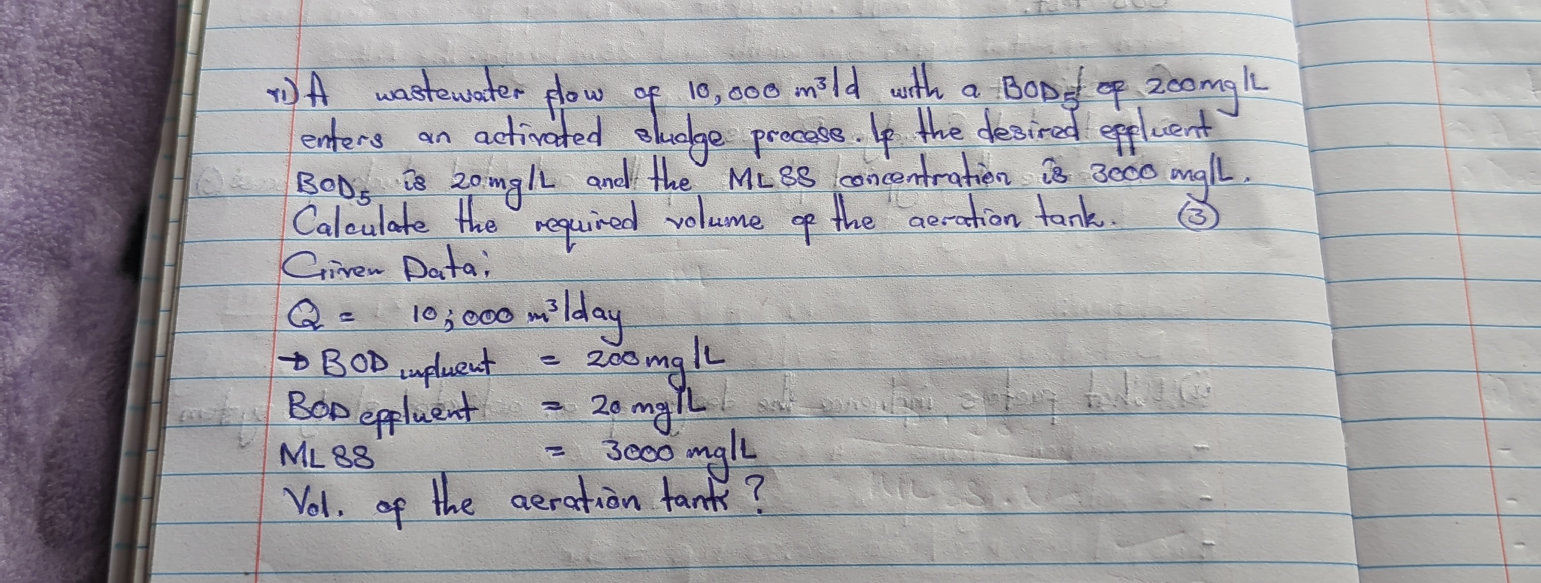 vi) A wastewater flow of 10,000 m³/d with a BOD₅ of 200mg/L
enters an activated sludge process. If the desired effluent
BOD₅ is 20mg/L and the MLSS concentration is 3000 mg/L.
Calculate the required volume of the aeration tank. ③
Given Data;
Q = 10,000 m³/day
→ BOD influent = 200mg/L
BOD effluent = 20 mg/L
MLSS = 3000 mg/L
Vol. of the aeration tank?